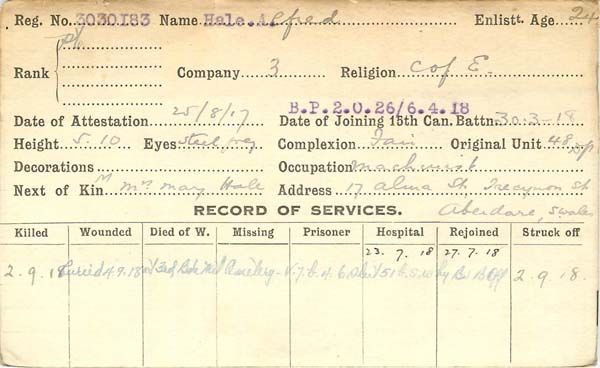 Reg. No. 3030183 Name Hale. Alfred Enlistt. Age 24
Rank Pte Company 3 Religion C of E.
B.P.2.0.26/6.4.18
Date of Attestation 25/8/17 Date of Joining 15th Can. Battn. 30.3-18
Height 5.10 Eyes Steel Complexion Fair Original Unit 48
Decorations Occupation machinist
Next of Kin M Mrs Mary Hale Address 17 Alma St, Trecynon St
Aberdare, S Wales
RECORD OF SERVICES.
Killed Wounded Died of W. Missing Prisoner Hospital Rejoined Struck off
23. 7. 18 27. 7. 18
2.9.18 Buried 4.9.18 Cemetery 2.9.18.